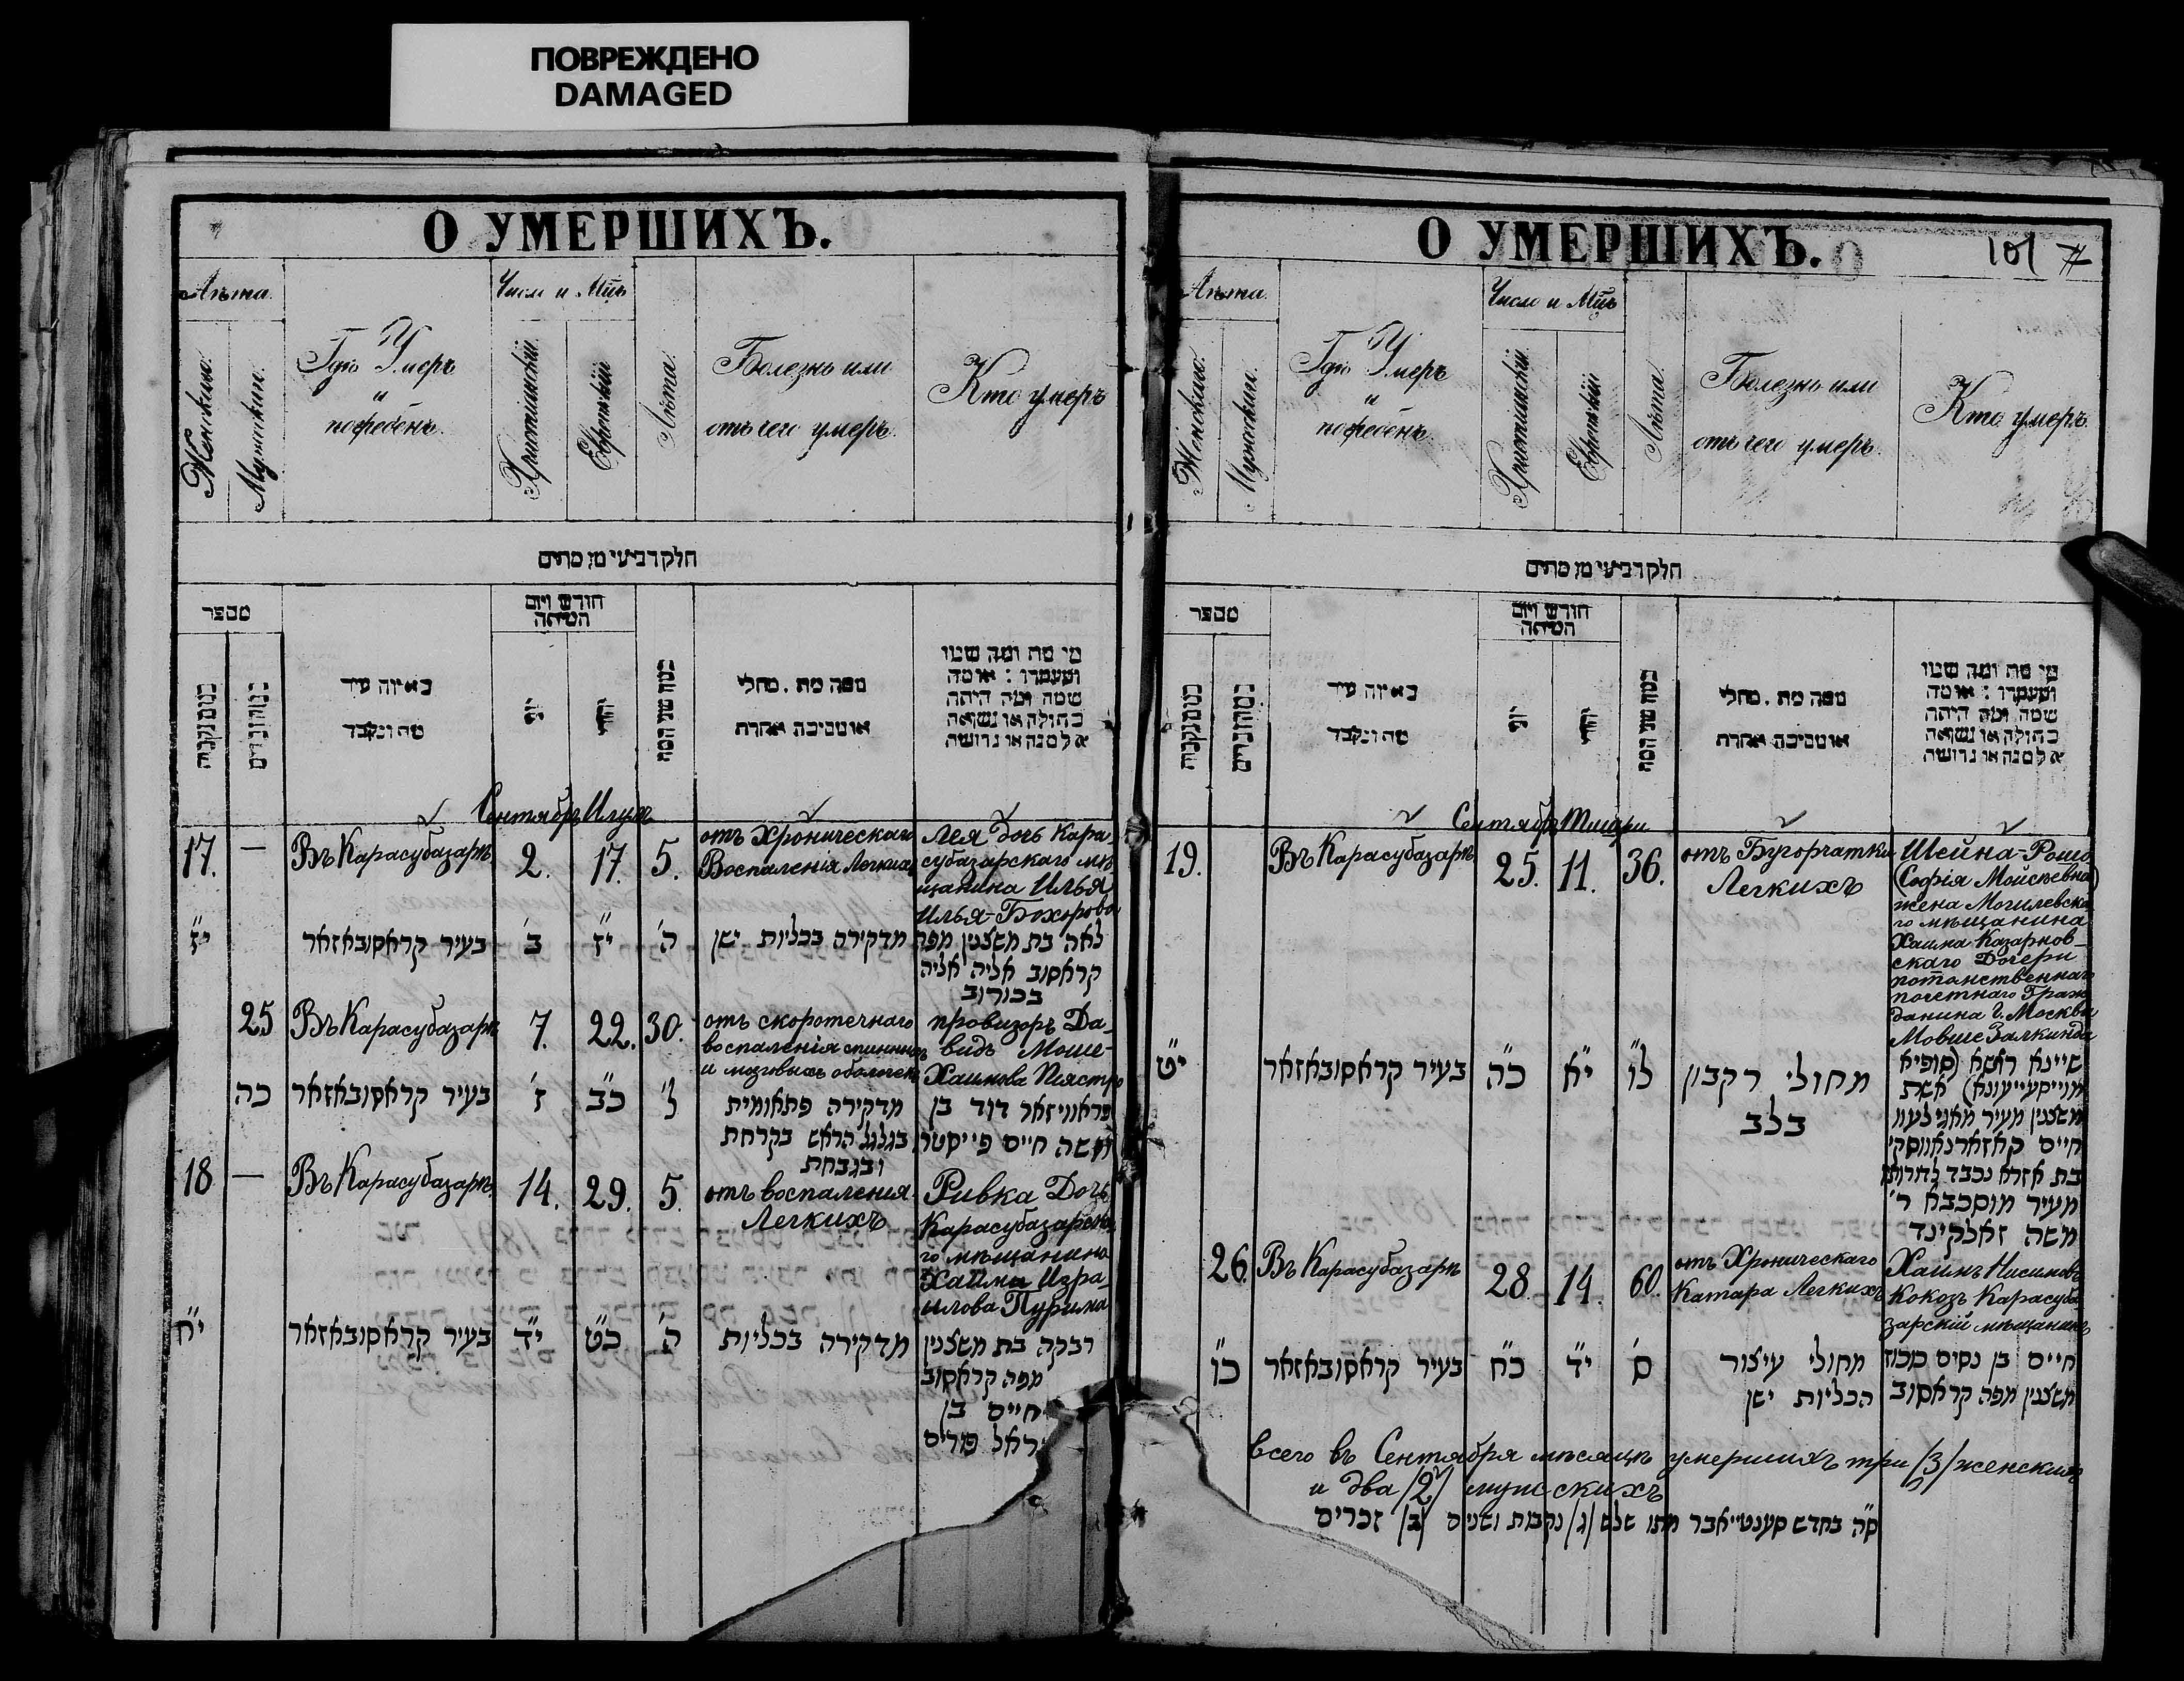 ПОВРЕЖДЕНО
DAMAGED
О УМЕРШИХЪ.
Лѣта.
Женскихъ.
Мужскихъ.
Гдѣ Умеръ
и
погребенъ.
Число и Мцъ
Христіанскій.
Еврейскій
Лѣта.
Болезнь или
отъ чего умеръ.
Кто умеръ
חלק רביעי מן מתים
מספר
באיזה עיר
מת ונקבר
חודש ויום
המיתה
כמה שני המת
ממה מת . מחלי
או מסיבה אחרת
מי מת ומה שמו
ומעמדו : או מה
שמה ומה היתה
בתולה או נשואה
אלמנה או גרושה
Сентябрь Илулъ
17. — Въ Карасубазарѣ 2. 17. 5.
отъ Хроническаго
Воспаленія Легкихъ
Лея дочь Кара-
субазарскаго мѣ-
щанина Илья
Илья-Бохорова
י״ז
בעיר קראסובאזאר
ב׳ י״ז ה׳
מדקירה בכליות ישן
לאה בת משצנין מפה
קראסוב אליה אליה
בכורוב
25 Въ Карасубазарѣ 7. 22. 30.
отъ скоротечнаго
воспаленія спинныхъ
и мозговыхъ оболочекъ
провизоръ Да-
видъ Моше-
Хаимова Пиястро
כה בעיר קראסובאזאר ז׳ כ״ב ל׳
מדקירה פתאומית
בגלגל הראש בקרחת
ובגבחת
פראוויזאר דוד בן
משה חיים פייסטרו
18 — Въ Карасубазарѣ 14. 29. 5.
отъ воспаленія
Легкихъ
Ривка Дочь
Карасубазарска-
го мѣщанина
Хаима Изра-
илова Пурима
י״ח
בעיר קראסובאזאר
י״ד כ״ט ה׳
מדקירה בכליות
רבקה בת משצנין
מפה קראסוב
חיים בן
ראל פורים
О УМЕРШИХЪ.
101 7
Лѣта.
Женскихъ.
Мужскихъ.
Гдѣ Умеръ
и
погребенъ.
Число и Мцъ
Христіанскій.
Еврейскій
Лѣта.
Болезнь или
отъ чего умеръ.
Кто умеръ.
חלק רביעי מן מתים
מספר
באיזה עיר
מת ונקבר
חודש ויום
המיתה
כמה שני המת
ממה מת . מחלי
או מסיבה אחרת
מי מת ומה שמו
ומעמדו : או מה
שמה ומה היתה
בתולה או נשואה
אלמנה או גרושה
Сентябрь Тишри
19. Въ Карасубазарѣ 25. 11. 36.
отъ Бугорчатки
Легкихъ
Шейна-Роша
(Софія Моисѣевна)
жена Могилевска-
го мѣщанина
Хаима Казарнов-
скаго Дочери
потомственнаго
почетнаго Граж-
данина г. Москвы
Мовше Залкинда
י״ט
בעיר קראסובאזאר
כ״ה י״א ל״ו
מחולי רקבון
בלב
שיינא ראשא (סופיא
מוייסעייעוונא) אשת
משצנין מעיר מאגילעוו
חיים קאזארנאווסקי
בת אזרא נכבד לדורות
מעיר מוסכבא ר׳
משה זאלקינד
26. Въ Карасубазарѣ 28. 14. 60.
отъ Хроническаго
Катара Легкихъ
Хаимъ Нисимовъ
Кокозъ Карасуба-
зарскій мѣщанинъ
כ״ו בעיר קראסובאזאר כ״ח י״ד ס׳
מחולי עיצור
הכליות ישן
חיים בן נסים כוכוז
משצנין מפה קראסוב
Всего въ Сентября мѣсяцѣ умершихъ три /3/ женскихъ
и два /2/ мужскихъ
ס״ה בחדש סענטיאבר מתו שלש /ג/ נקבות ושנים /ב/ זכרים